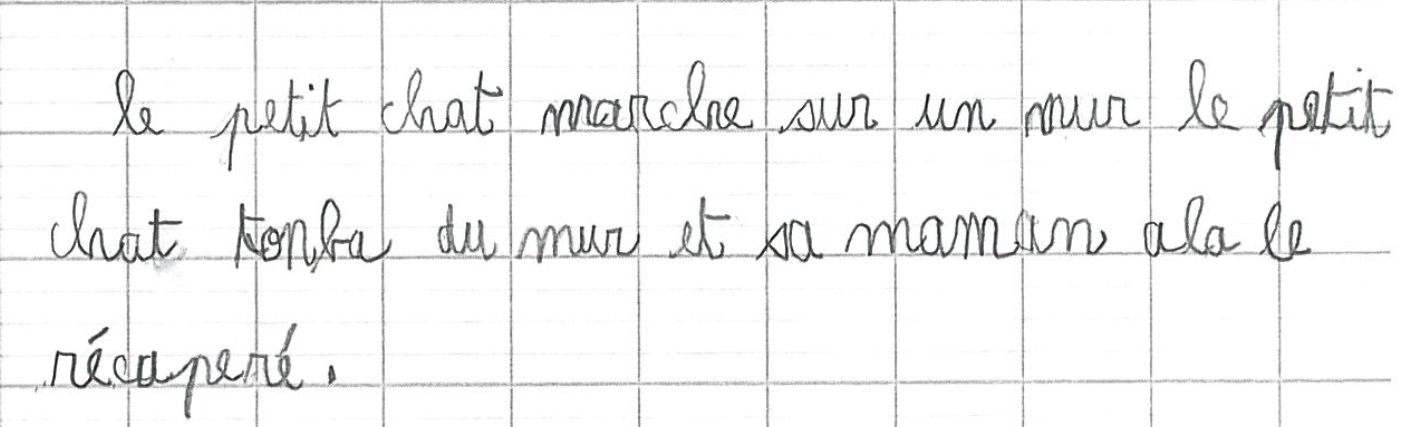 le petit chat marche sur un mur le petit
chat tonba du mur et sa maman ala le
récaperé.